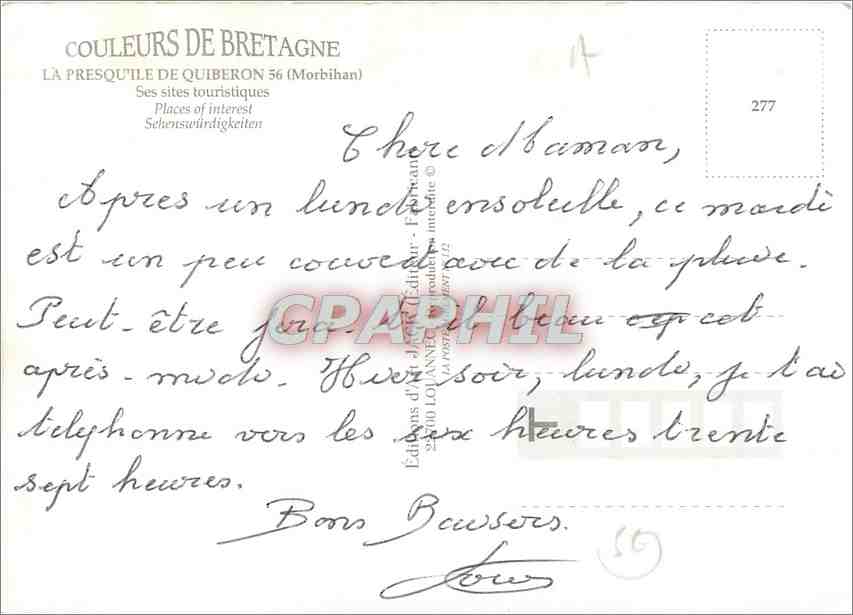 COULEURS DE BRETAGNE
LA PRESQU'ILE DE QUIBERON 56 (Morbihan)
Ses sites touristiques
Places of interest
Sehenswürdigkeiten
277
Chère Maman,
Après un lundi ensoleillé, ce mardi
est un peu couvert avec de la pluie.
Peut-être fera-t-il beau cet
après-midi. Hier soir, lundi, je t'ai
téléphonné vers les six heures trente
sept heures.
Bons Baisers.
Editions d'Art JACK (Éditeur - Fabricant)
LOUANNEC reproduction interdite ©
CPAPHIL
56